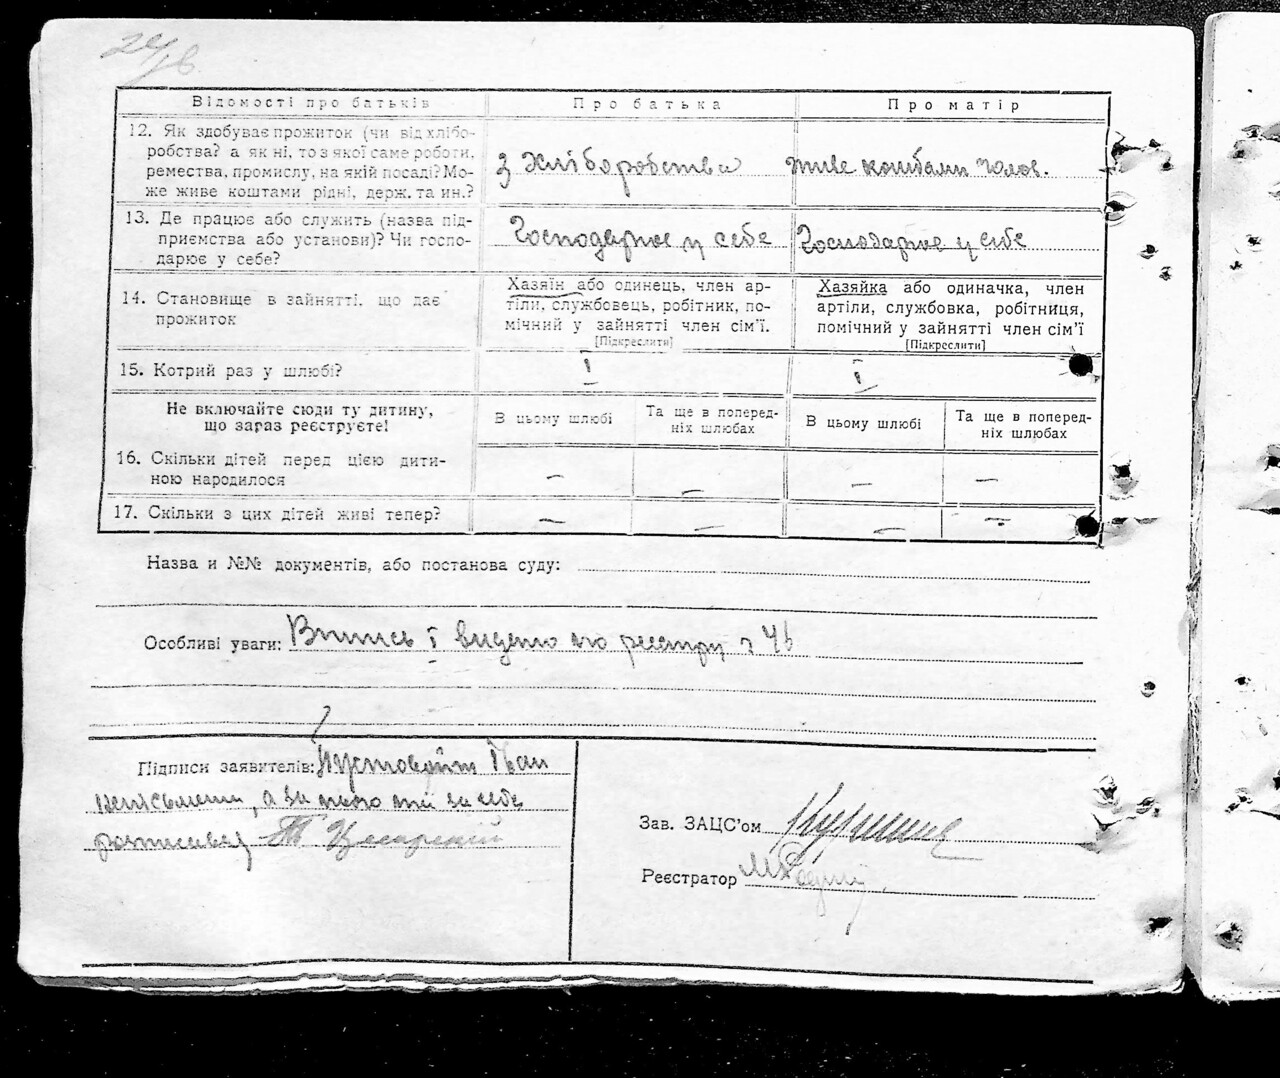 Відомості про батьків
Про батька
Про матір
12. Як здобуває прожиток (чи від хлібо-
робства? а як ні, то з якої саме роботи,
ремества, промислу, на якій посаді? Мо-
же живе коштами рідні, держ. та ин.?
з хліборобства
живе коштами чолов.
13. Де працює або служить (назва під-
приємства або установи)? Чи госпо-
дарює у себе?
Господарює у себе
Господарює у себе
14. Становище в зайнятті, що дає
прожиток
Хазяїн або одинець, член ар-
тіли, службовець, робітник, по-
мічний у зайнятті член сім'ї.
[Підкреслити]
Хазяйка або одиначка, член
артіли, службовка, робітниця,
помічний у зайнятті член сім'ї
[Підкреслити]
15. Котрий раз у шлюбі?
І
І
Не включайте сюди ту дитину,
що зараз реєструєте!
В цьому шлюбі
Та ще в поперед-
ніх шлюбах
В цьому шлюбі
Та ще в поперед-
ніх шлюбах
16. Скільки дітей перед цією дити-
ною народилося
– – – –
17. Скільки з цих дітей живі тепер?
– – – –
Назва и №№ документів, або постанова суду:
Особливі уваги: Випись і видано по реєстру
Підписи заявителів: Пустовойт Іван
неписьмений, а за нього та за себе
розписався
Зав. ЗАЦС'ом
Реєстратор